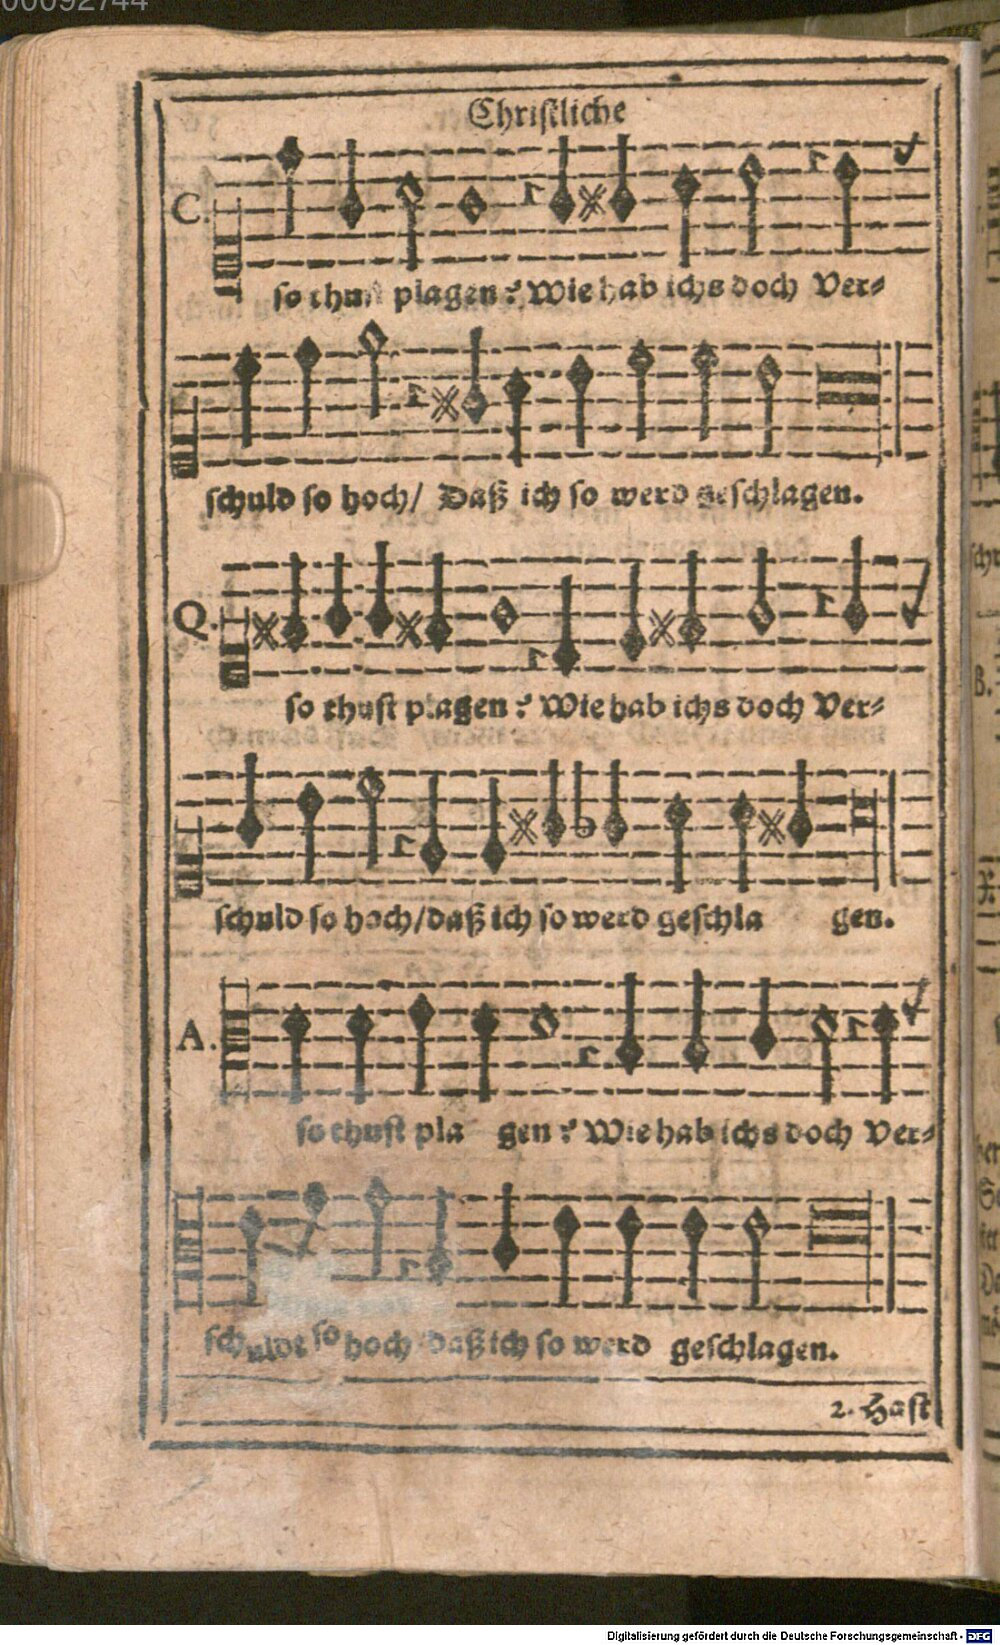 00092744
Christliche
C.
so thust plagen? Wie hab ichs doch Ver-
schuld so hoch/ Daß ich so werd geschlagen.
Q.
so thust plagen? Wie hab ichs doch Ver-
schuld so hoch/daß ich so werd geschla gen.
A.
so thust pla gen? Wie hab ichs doch Ver-
schuldt so hoch/daß ich so werd geschlagen.
2. Hast
Digitalisierung gefördert durch die Deutsche Forschungsgemeinschaft - DFG